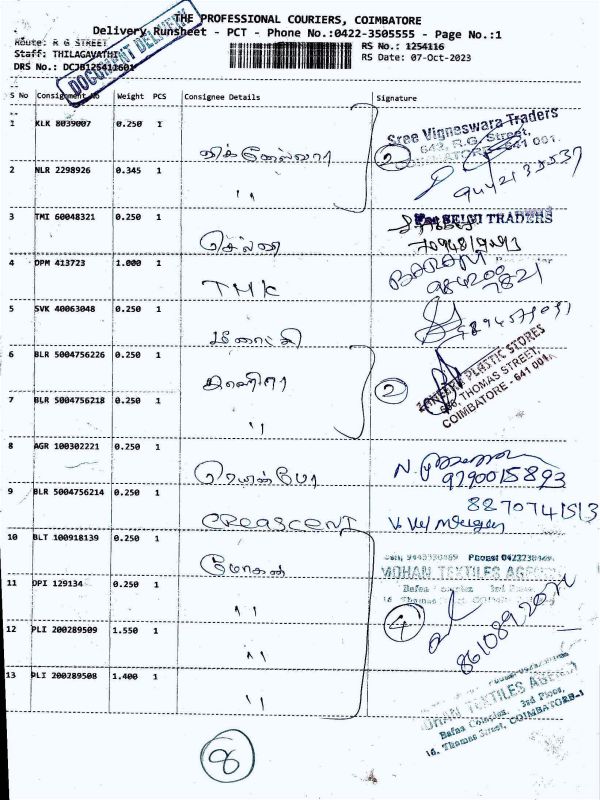 THE PROFESSIONAL COURIERS, COIMBATORE
Delivery Runsheet - PCT - Phone No.:0422-3505555 - Page No.:1
Route: R G STREET
RS No.: 1254116
Staff: THILAGAVATHI
RS Date: 07-Oct-2023
DRS No.: DCJB125411601
DOCUMENT DELIVERY
S No Consignment No Weight PCS Consignee Details Signature
1 KLK 8039007 0.250 1
Sree Vigneswara Traders
642, R.G. Street,
COIMBATORE - 641 001.
2
2 NLR 2298926 0.345 1 ,,
9442135537
3 TMI 60048321 0.250 1 செல்வி
TRADERS
4 DPM 413723 1.000 1 TMK
BARANI
984200
7821
5 SVK 40063048 0.250 1 மீனாட்சி
6 BLR 5004756226 0.250 1
2
PLASTIC STORES
THOMAS STREET,
COIMBATORE - 641 001.
7 BLR 5004756218 0.250 1 ,,
8 AGR 100302221 0.250 1 ரெயின்போ
9790015893
9 BLR 5004756214 0.250 1 CREASCENT
8270741513
V. Vel Murugan
10 BLT 100918139 0.250 1 மோகன்
MOHAN TEXTILES AGENCY
Bafna Complex 3rd Floor,
16 Thomas Street,
11 DPI 129134 0.250 1 ,,
4
12 PLI 200289509 1.550 1 ,,
13 PLI 200289508 1.400 1 ,,
MOHAN TEXTILES AGENCY
Bafna Complex, 3rd Floor,
16, Thomas Street, COIMBATORE-1
8